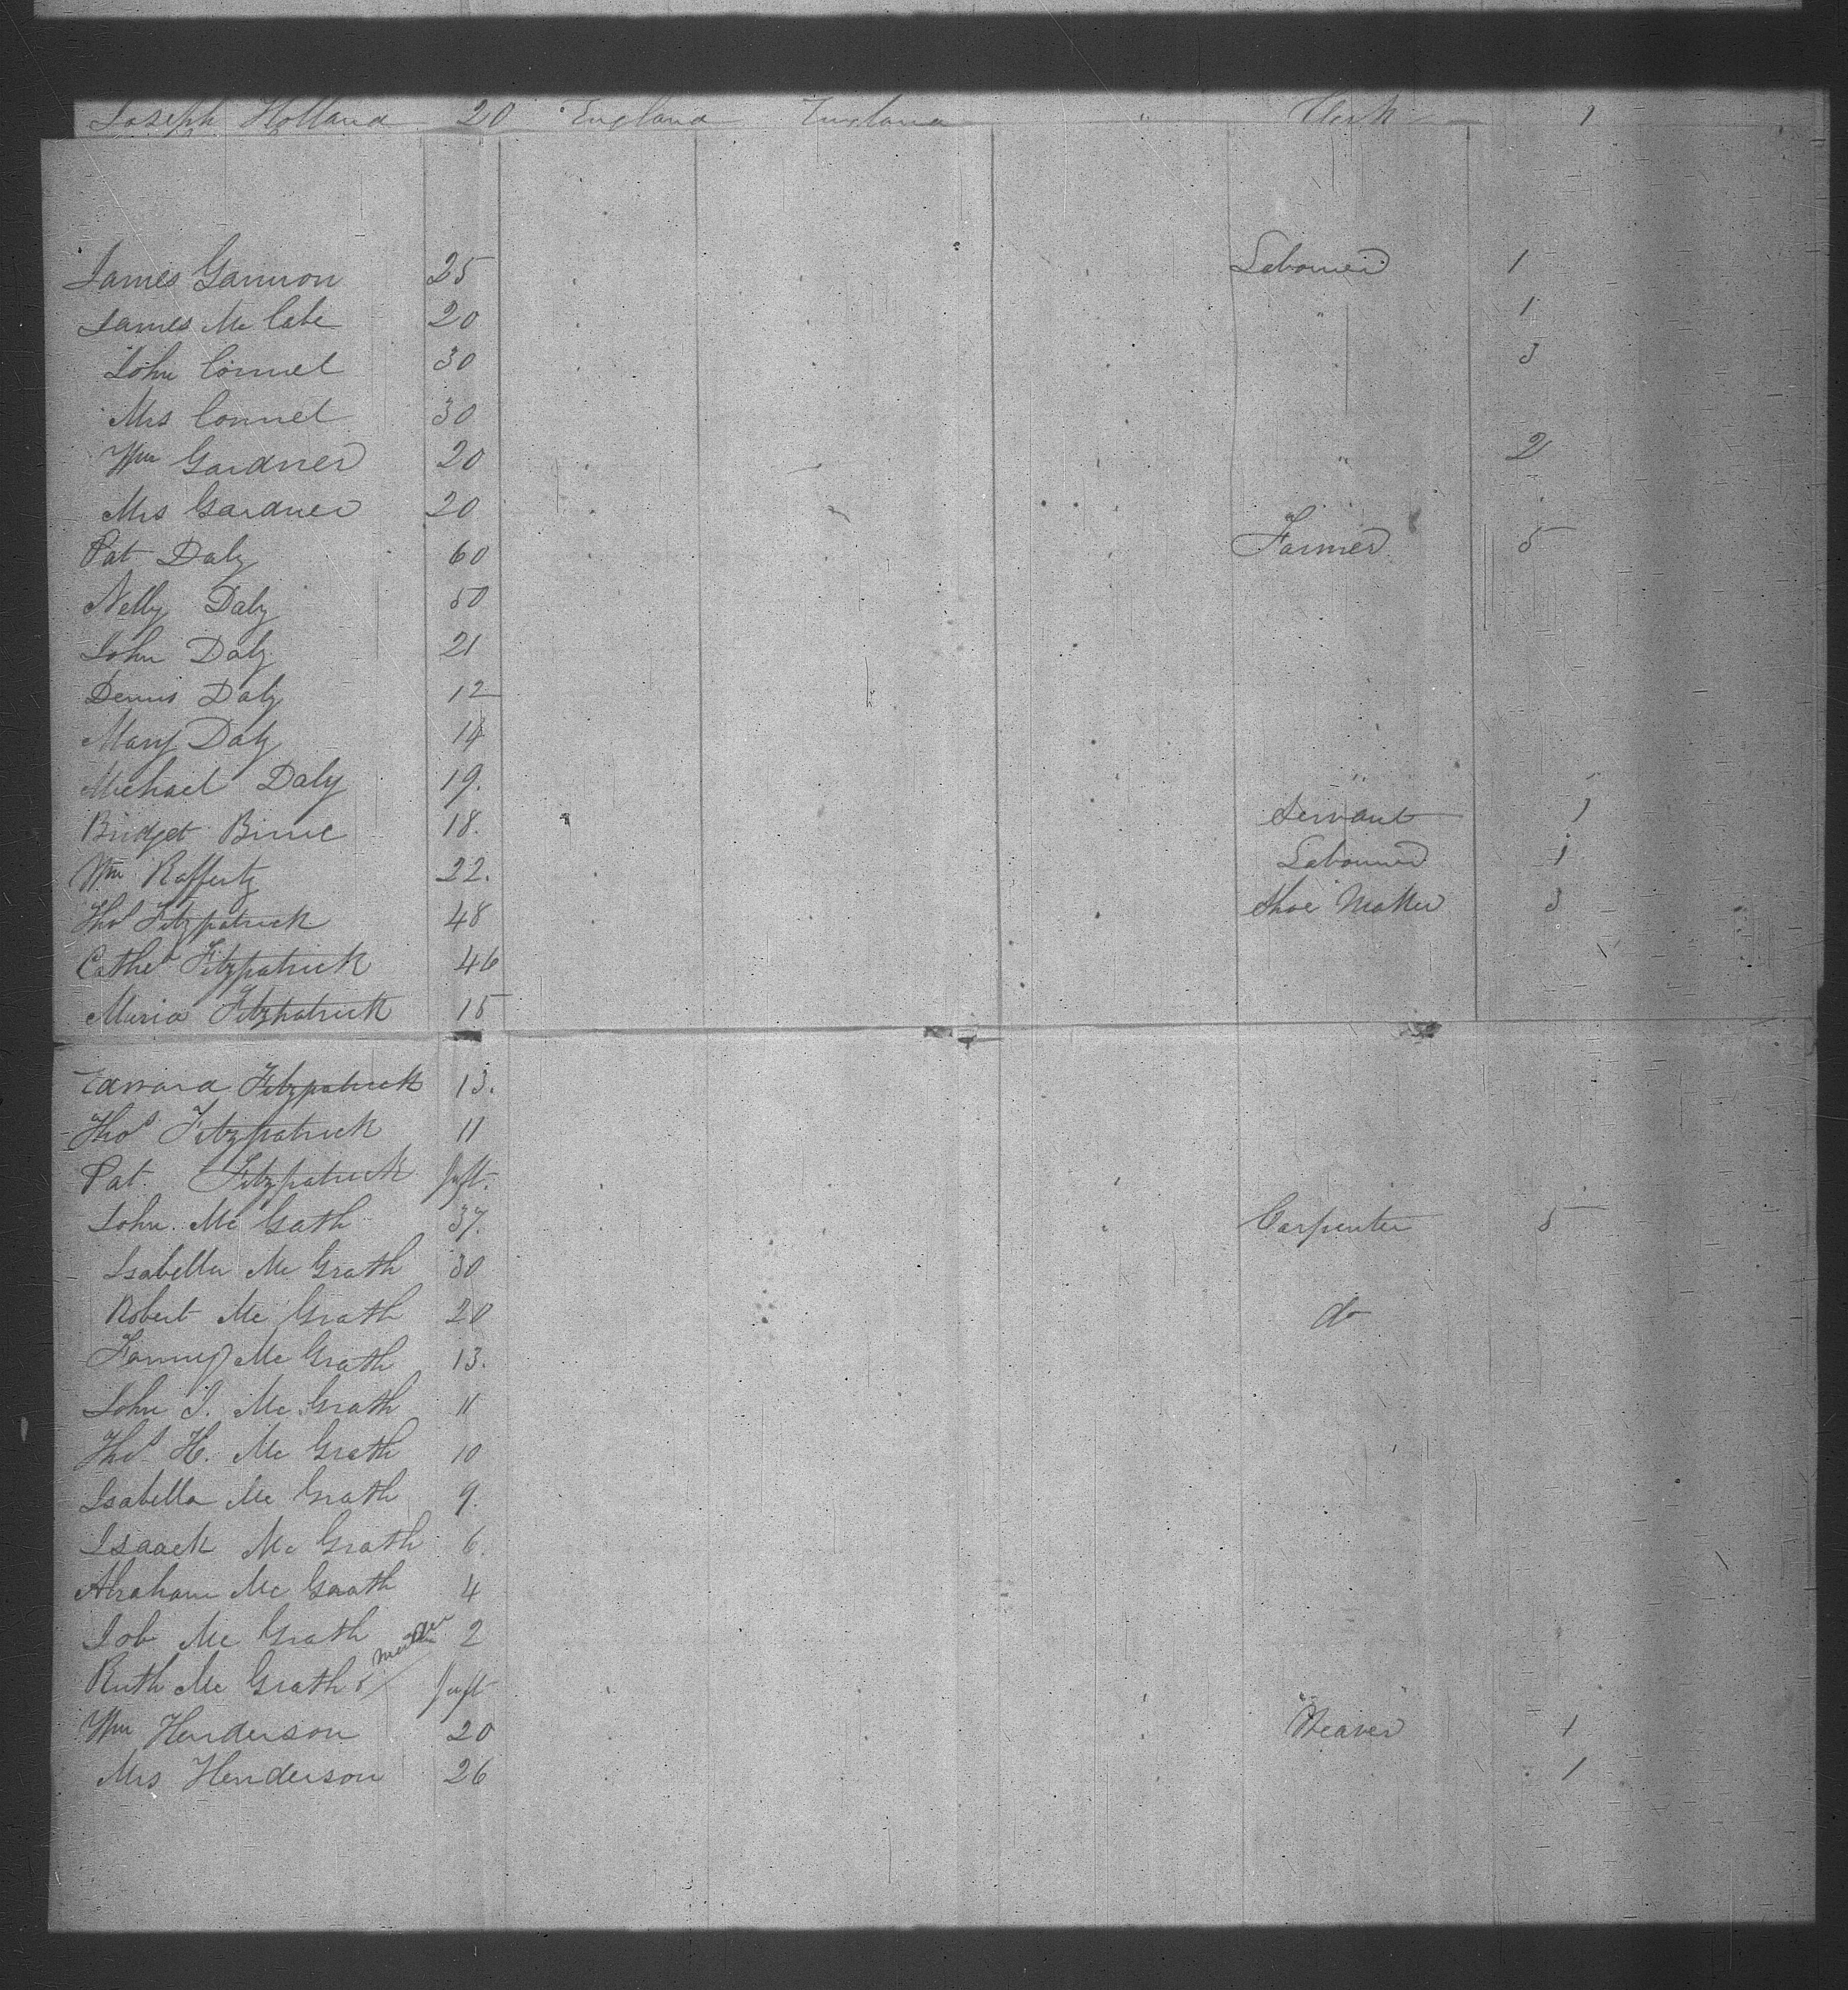 Joseph Holland 20 England England " Clerk 1
James Gannon 25 Labourer 1
James Mc Cabe 20 " 1
John Connel 30 " 3
Mrs Connel 30
Wm Gardner 20 " 2
Mrs Gardner 20
Pat Daly 60 Farmer 5
Nelly Daly 50
John Daly 21
Dennis Daly 12
Mary Daly 14
Michael Daly 19. "
Bridget 18. Servant 1
Wm Rafferty 22. Labourer 1
Thos Fitzpatrick 48 Shoe Maker 3
Cathe Fitzpatrick 46
Maria Fitzpatrick 15
Edward Fitzpatrick 13.
Thos Fitzpatrick 11
Pat. Fitzpatrick Inft.
John Mc Gath 37. Carpenter 5
Isabella Mc Grath 30
Robert Mc Grath 20 do
Fanny Mc Grath 13.
John J. Mc Grath 11
Thos H. Mc Grath 10
Isabella Mc Grath 9.
Isaack Mc Grath 6.
Abraham Mc Grath 4
Job Mc Grath 2
Ruth Mc Grath Inft
Wm Henderson 20 Weaver 1
Mrs Henderson 26 1